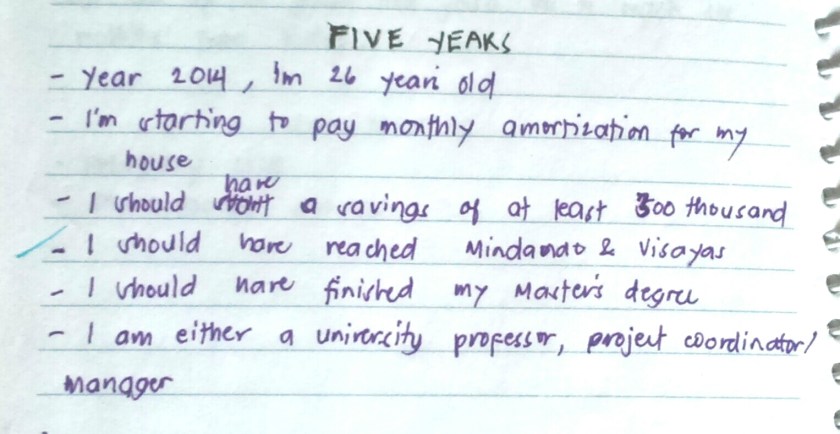 FIVE YEARS
- Year 2014, I'm 26 years old
- I'm starting to pay monthly amortization for my
house
- I should have a savings of at least 300 thousand
- I should have reached Mindanao & Visayas
- I should have finished my Master's degree
- I am either a university professor, project coordinator/
manager